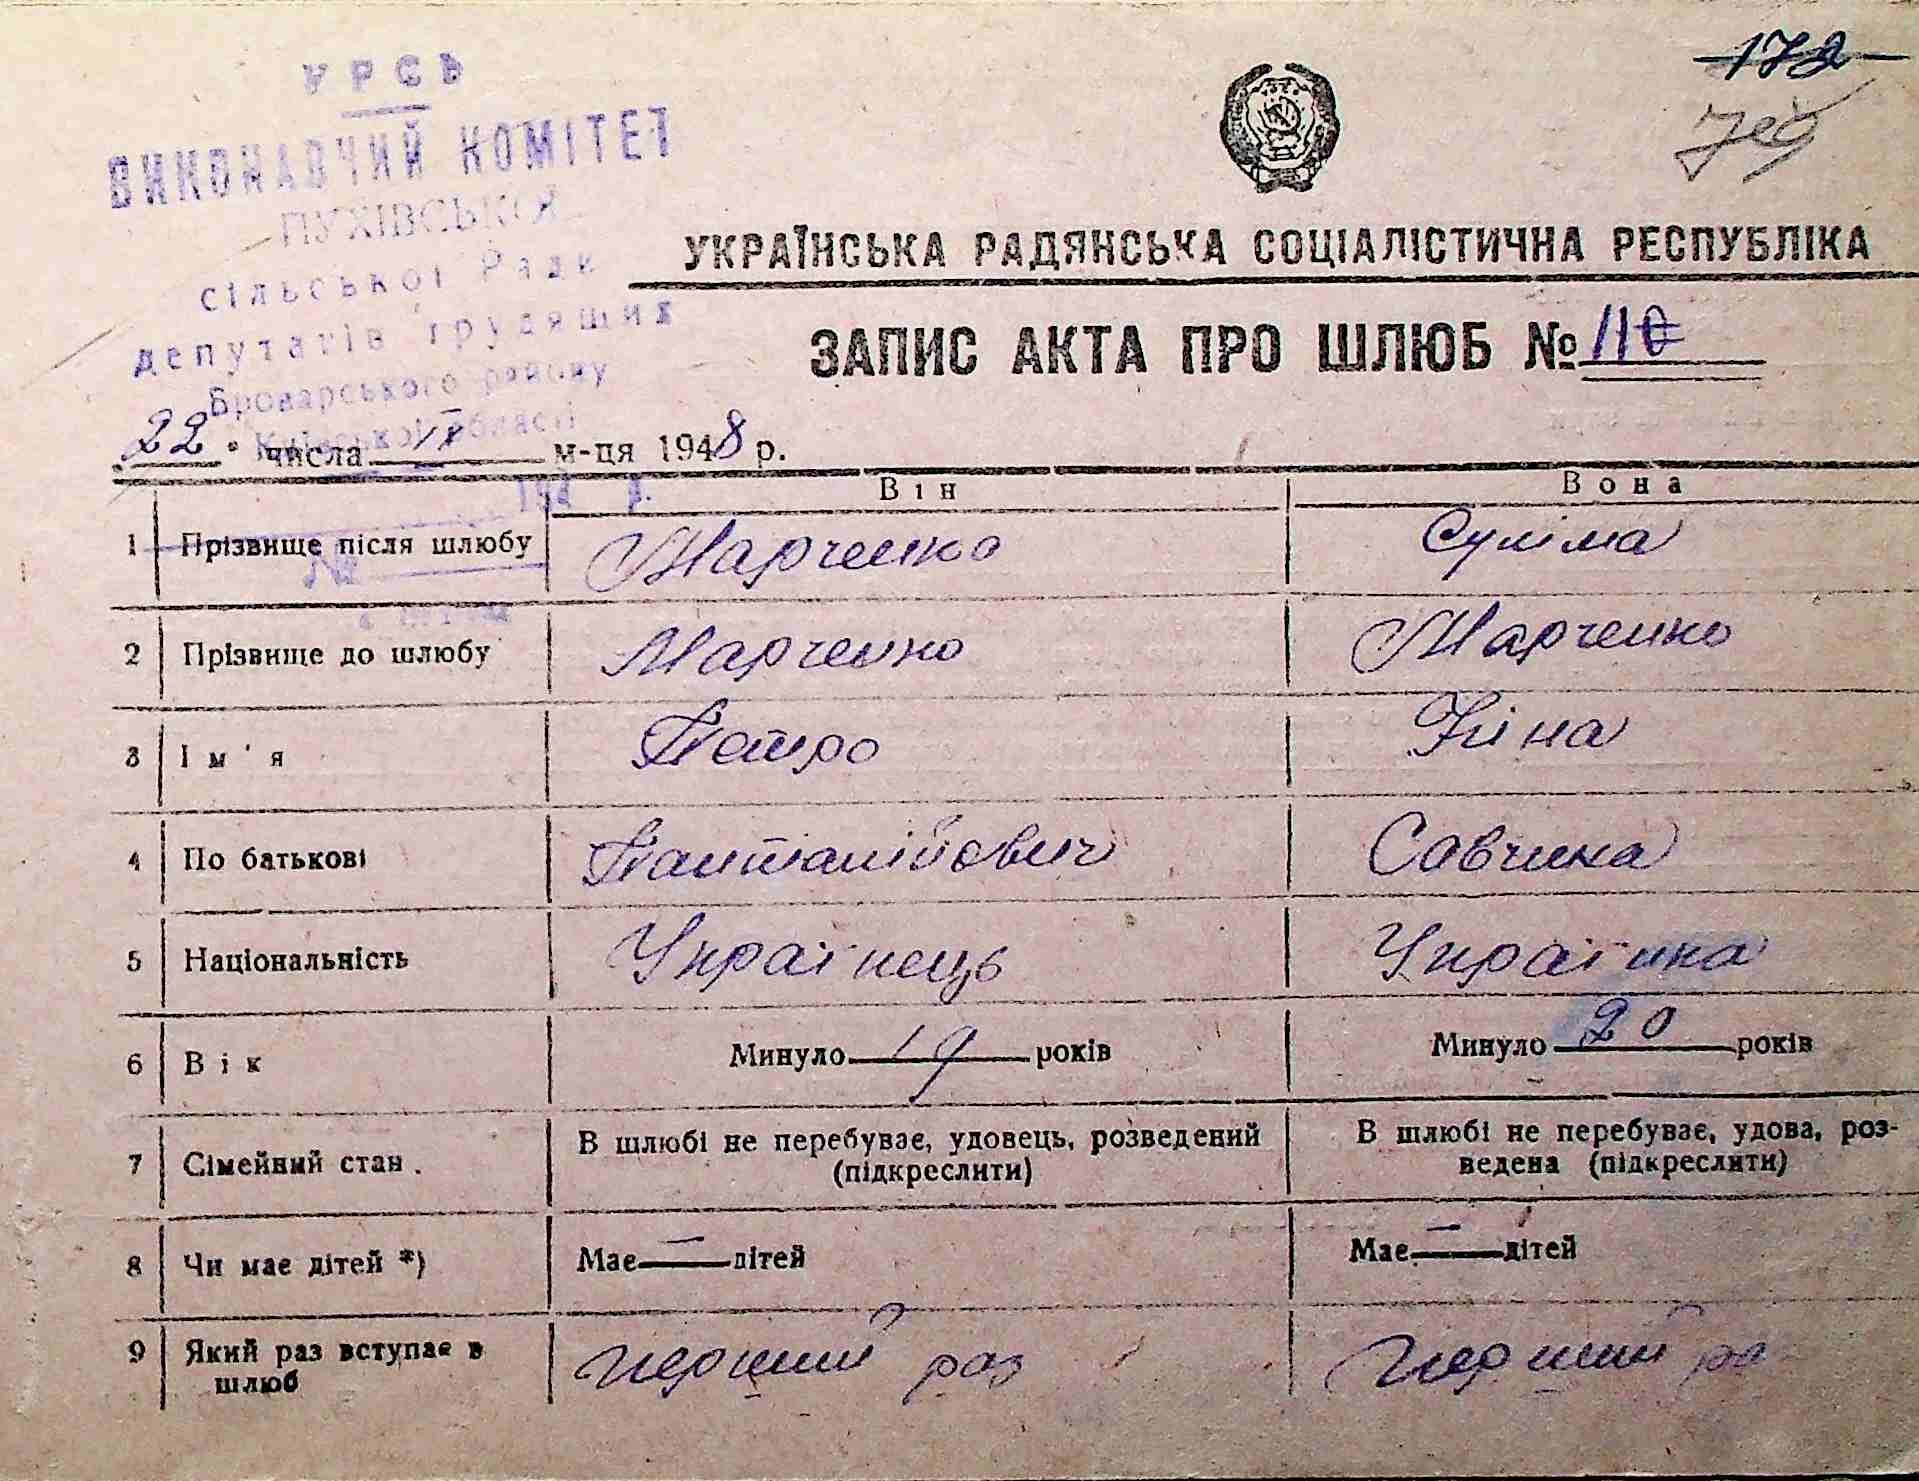 УРСР
ВИКОНАВЧИЙ КОМІТЕТ
ПУХІВСЬКОЇ
сільської Ради
депутатів трудящих
Броварського району
Київської області
194 р.
№
172
УКРАЇНСЬКА РАДЯНСЬКА СОЦІАЛІСТИЧНА РЕСПУБЛІКА
ЗАПИС АКТА ПРО ШЛЮБ № 110
22 числа IX м-ця 1948 р.
Він Вона
1 Прізвище після шлюбу Марченко Суліма
2 Прізвище до шлюбу Марченко Марченко
3 Ім'я Петро Ніна
4 По батькові Панталійович Савчина
5 Національність Українець Українка
6 Вік Минуло 19 років Минуло 20 років
7 Сімейний стан. В шлюбі не перебуває, удовець, розведений В шлюбі не перебуває, удова, роз-
(підкреслити) ведена (підкреслити)
8 Чи має дітей *) Має — дітей Має — дітей
9 Який раз вступає в перший раз перший ра
шлюб